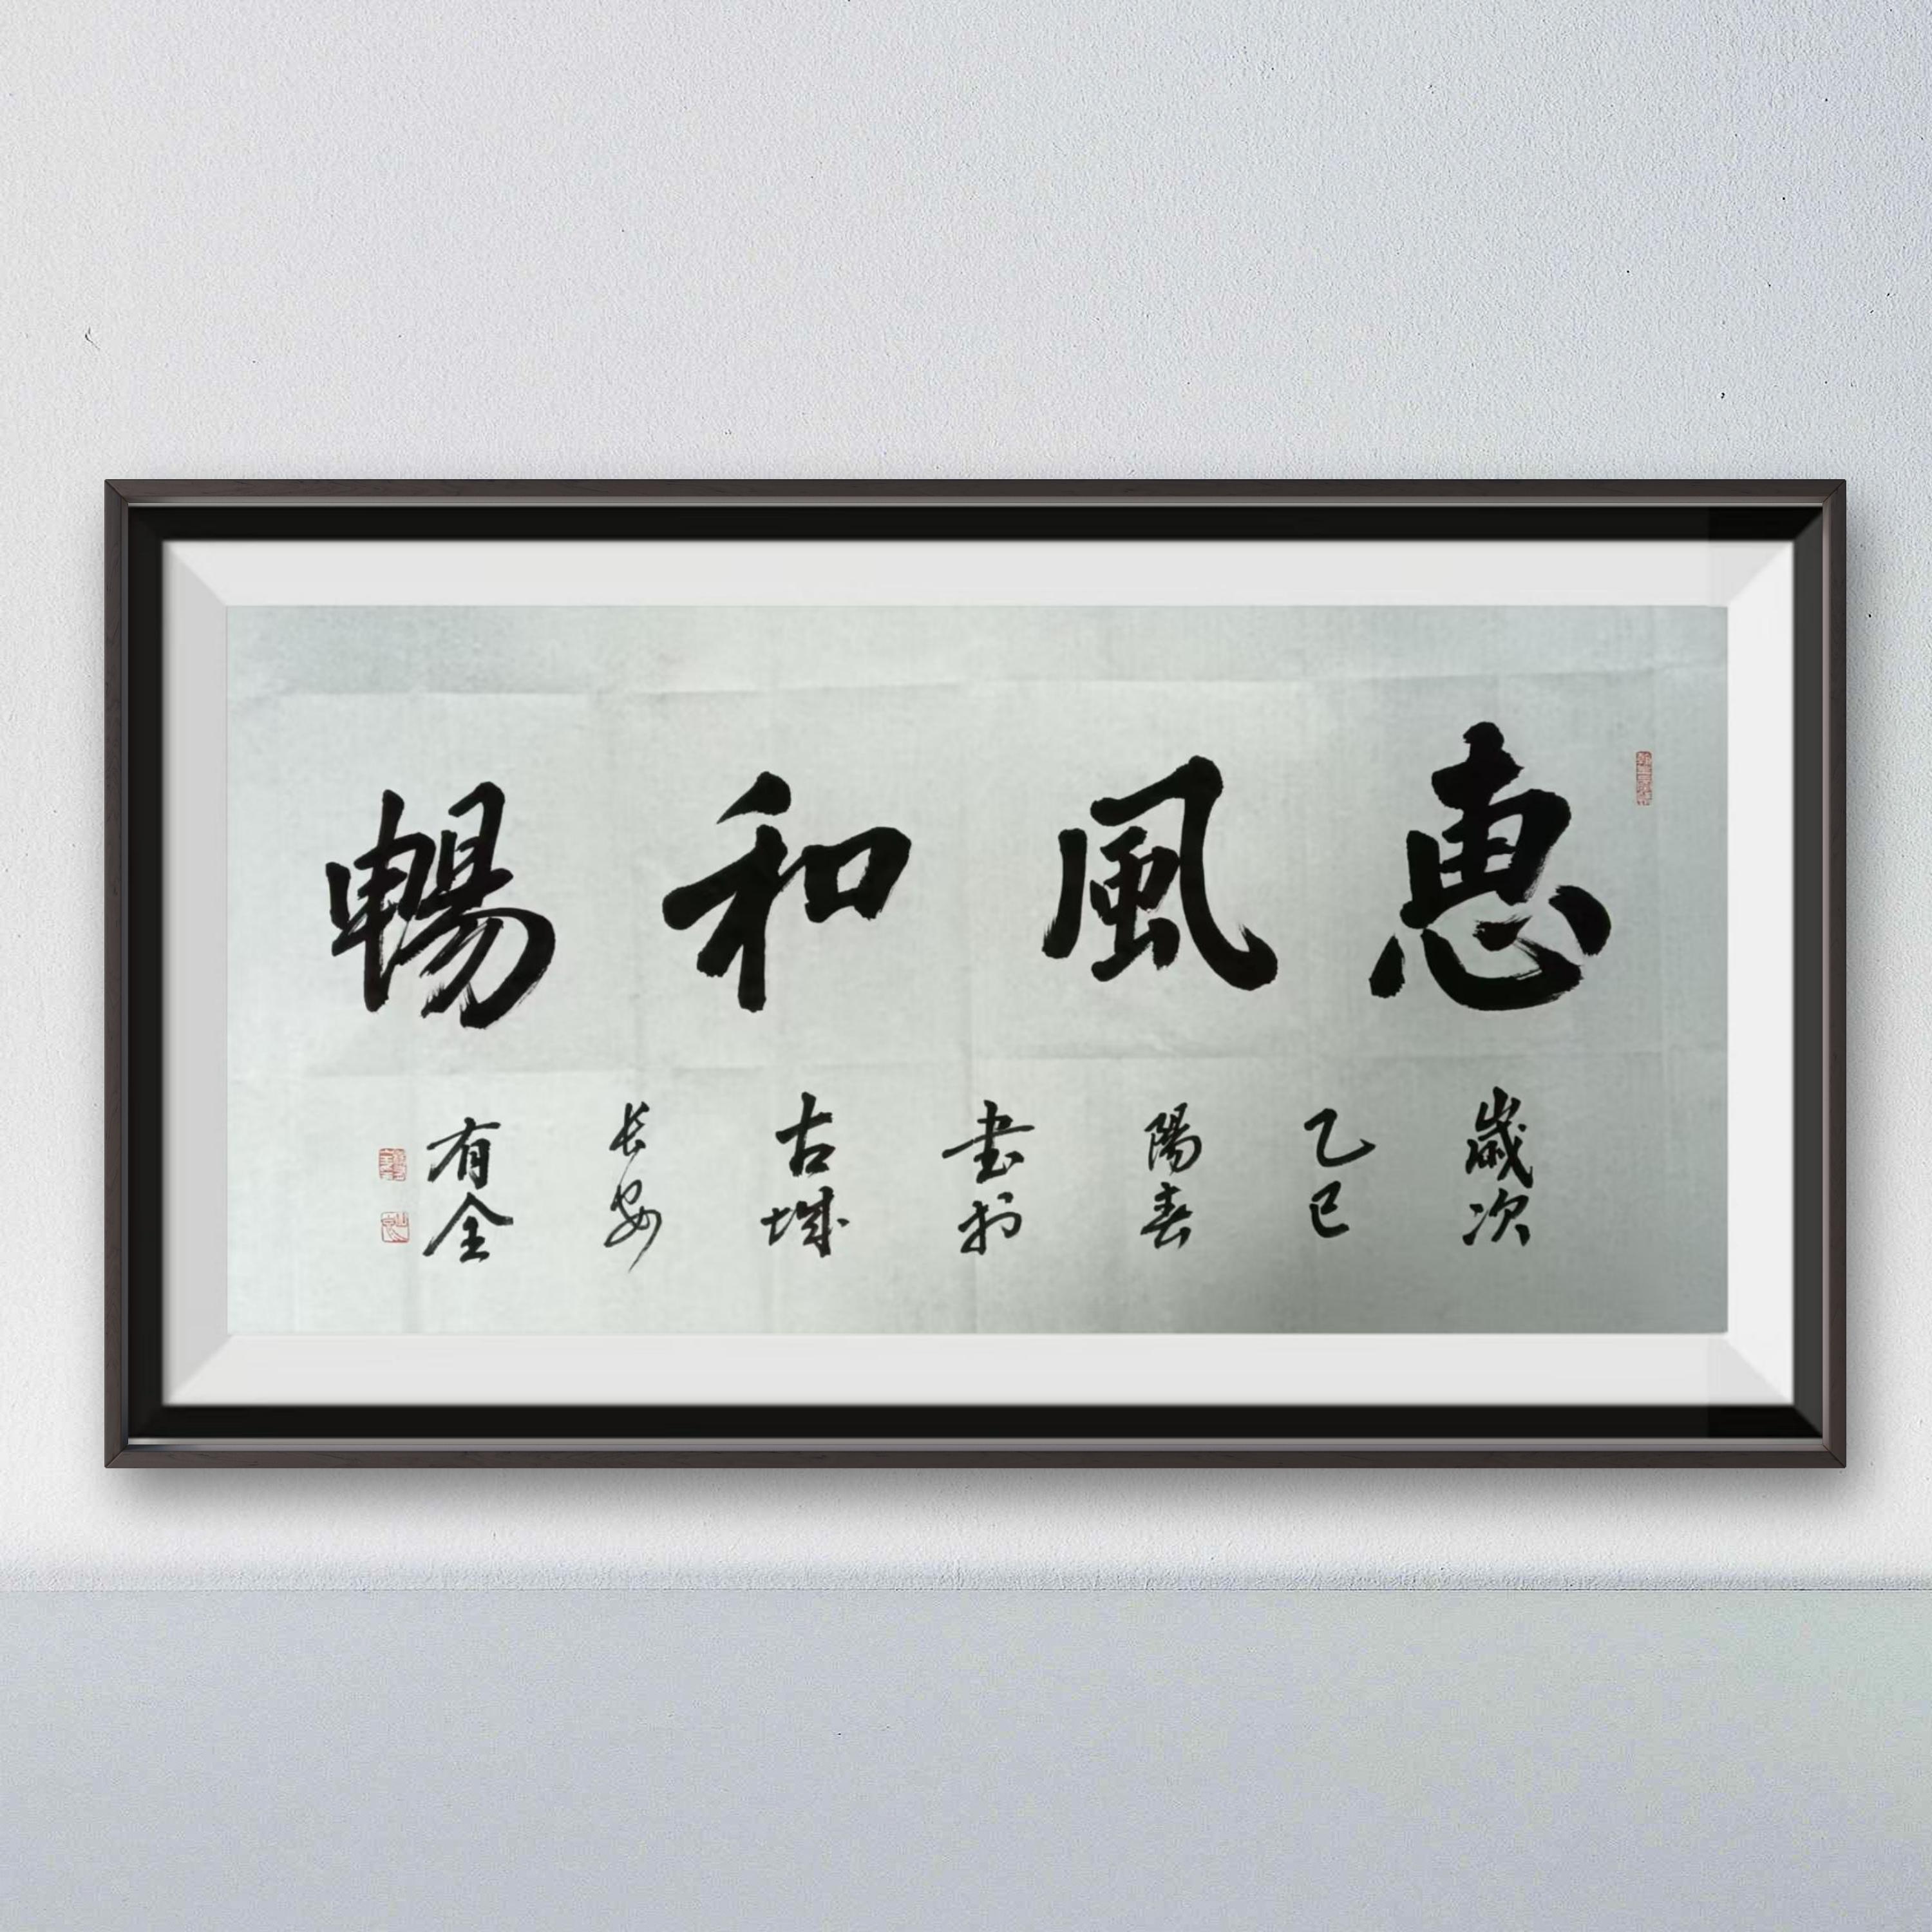 惠風和暢
歲次
乙巳
陽春
书於
古城
长安
有全